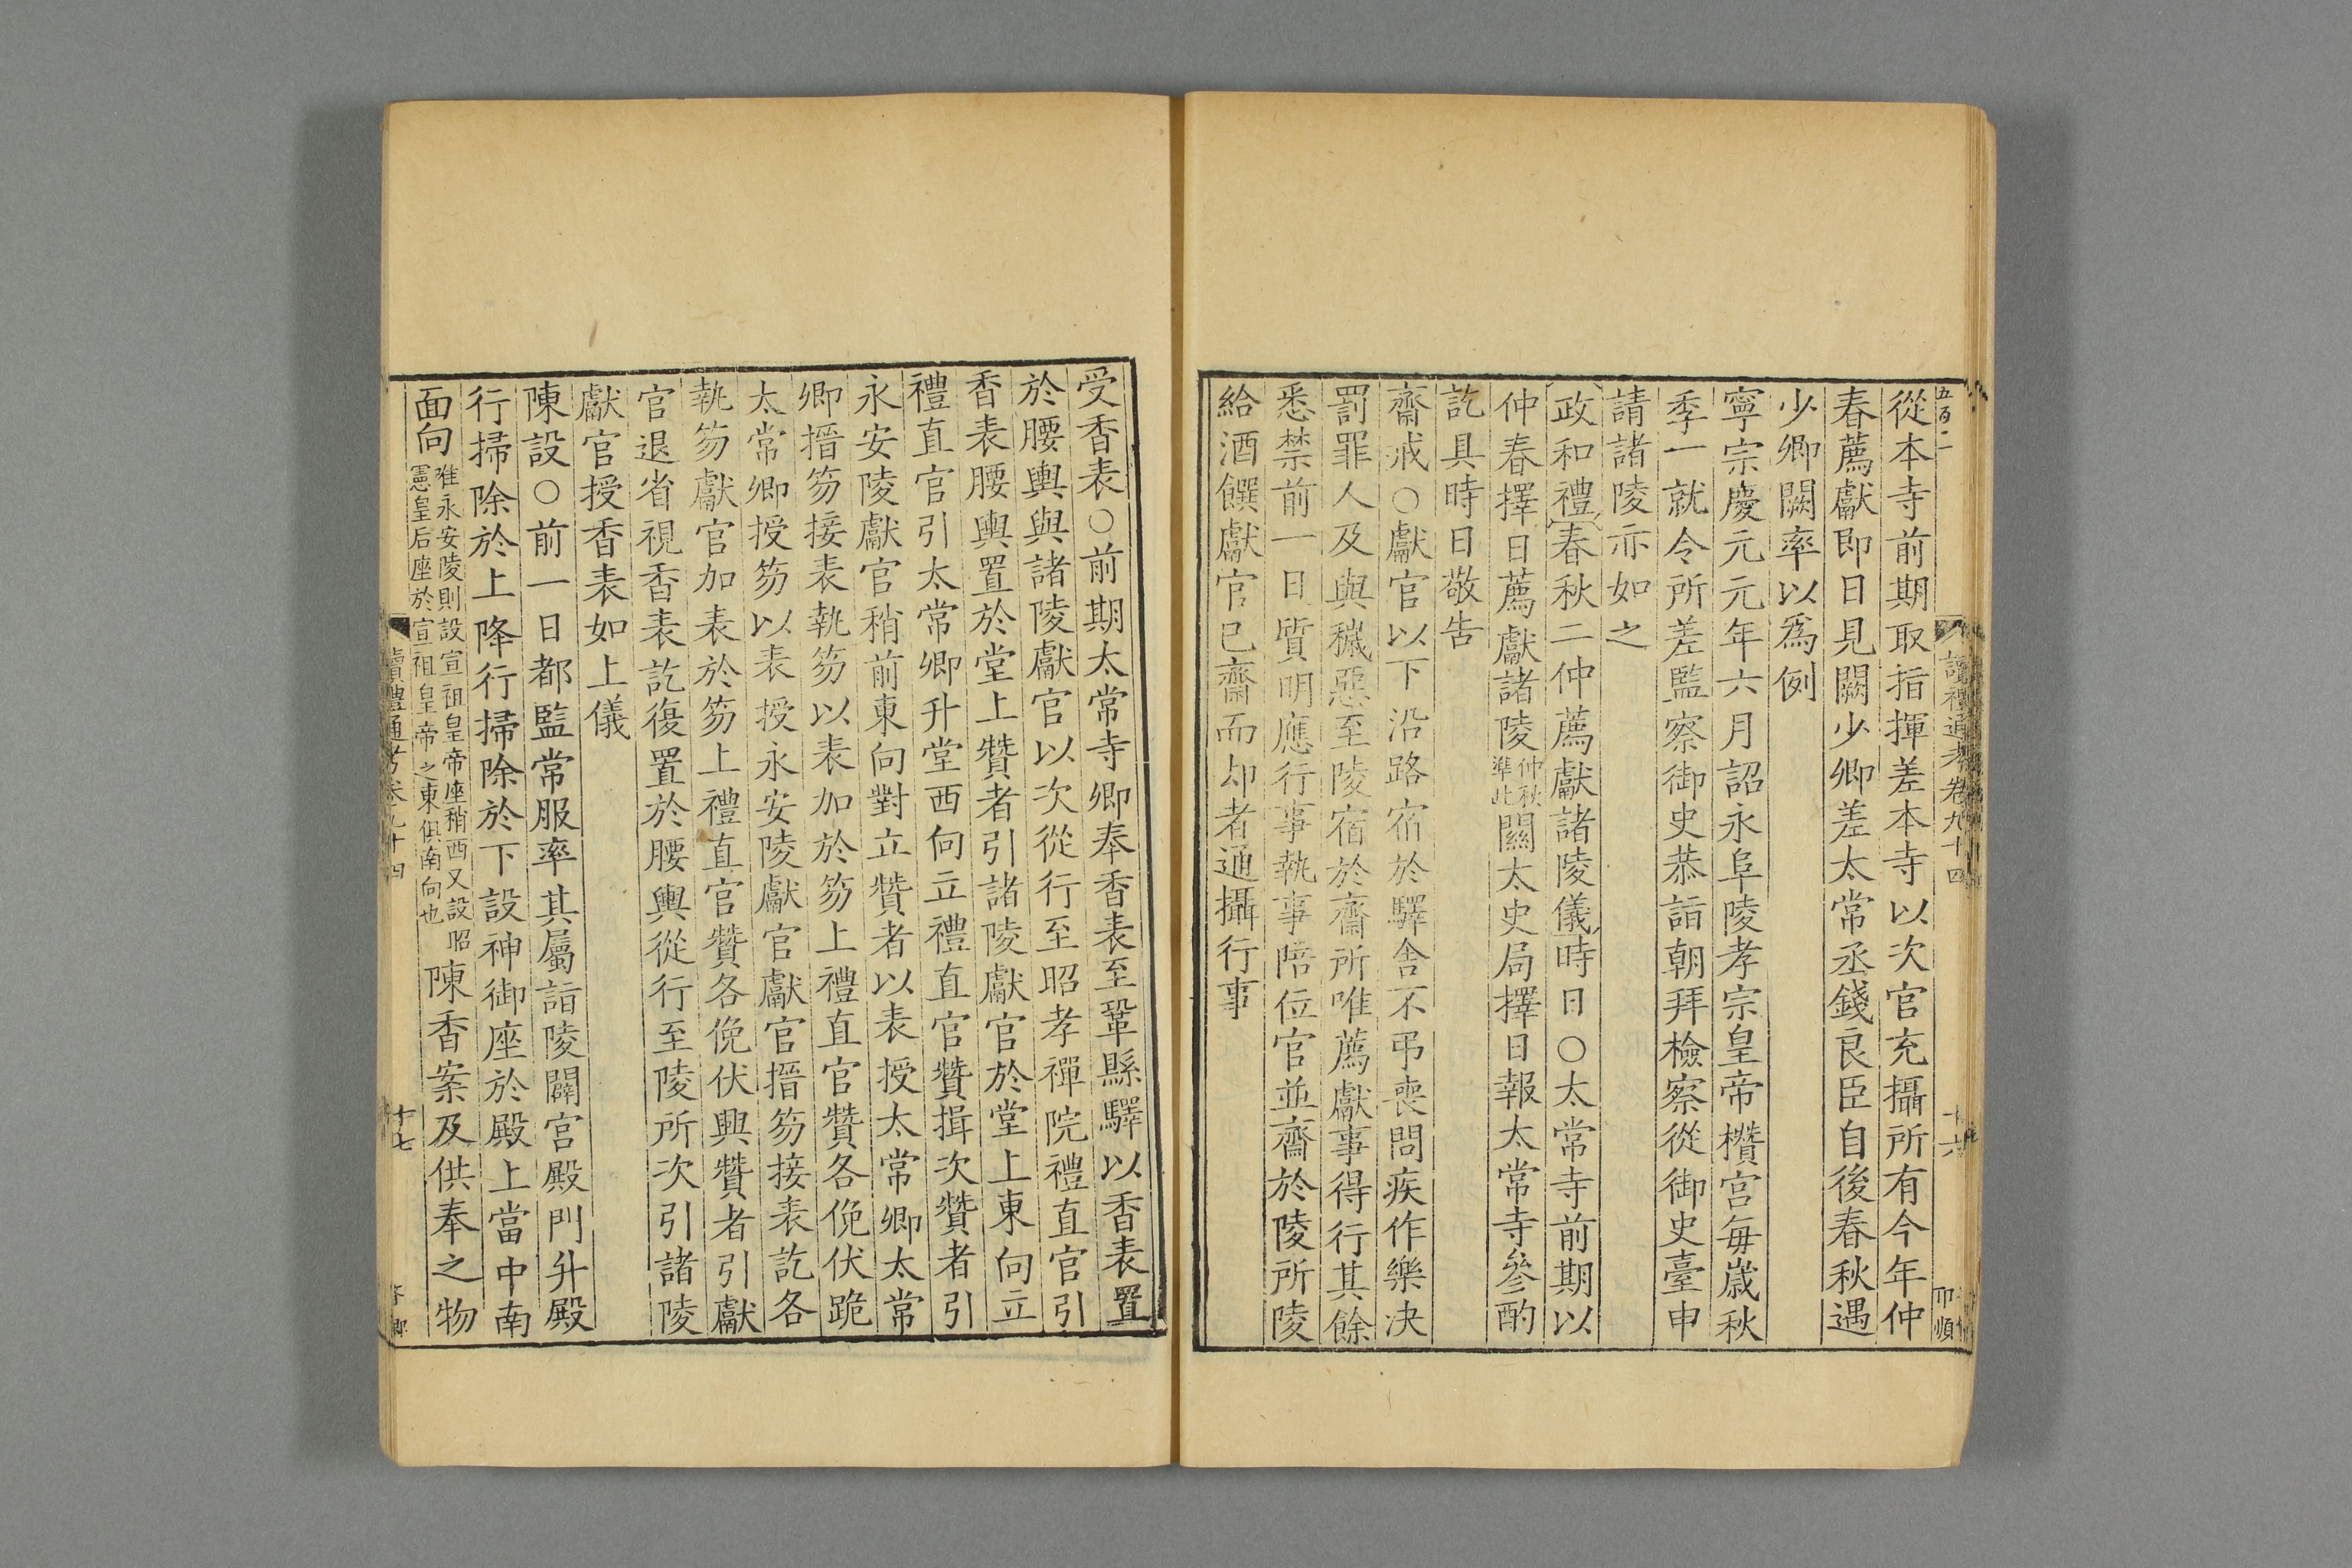 五百二
讀禮通考卷九十四
十六
從本寺前期取指揮差本寺以次官充攝所有今年仲
春薦獻即日見闕少卿差太常丞錢良臣自後春秋遇
少卿闕率以爲例
寧宗慶元元年六月詔永阜陵孝宗皇帝欑宫每歲秋
季一就令所差監察御史恭詣朝拜檢察從御史臺申
請諸陵亦如之
政和禮春秋二仲薦獻諸陵儀時日○太常寺前期以
仲春擇日薦獻諸陵仲秋準此關太史局擇日報太常寺參酌
訖具時日敬告
齋戒○獻官以下沿路宿於驛舍不弔喪問疾作樂决
罰罪人及與穢惡至陵宿於齋所唯薦獻事得行其餘
悉禁前一日質明應行事執事陪位官並齋於陵所陵
給酒饌獻官已齋而却者通攝行事
受香表○前期太常寺卿奉香表至鞏縣驛以香表置
於腰輿與諸陵獻官以次從行至昭孝禪院禮直官引
香表腰輿置於堂上贊者引諸陵獻官於堂上東向立
禮直官引太常卿升堂西向立禮直官贊揖次贊者引
永安陵獻官稍前東向對立贊者以表授太常卿太常
卿搢笏接表執笏以表加於笏上禮直官贊各俛伏跪
太常卿授笏以表授永安陵獻官獻官搢笏接表訖各
執笏獻官加表於笏上禮直官贊各俛伏興贊者引獻
官退省視香表訖復置於腰輿從行至陵所次引諸陵
獻官授香表如上儀
陳設○前一日都監常服率其屬詣陵闢宫殿門升殿
行掃除於上降行掃除於下設神御座於殿上當中南
面向惟永安陵則設宣祖皇帝座稍西又設昭憲皇后座於宣祖皇帝之東俱南向也陳香案及供奉之物
讀禮通考卷九十四
十七